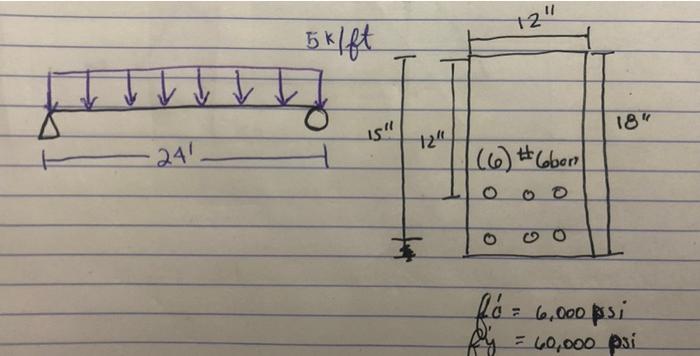 5k/ft
24'
12"
15"
12"
18"
(6) #6bars
f'c = 6,000 psi
fy = 60,000 psi